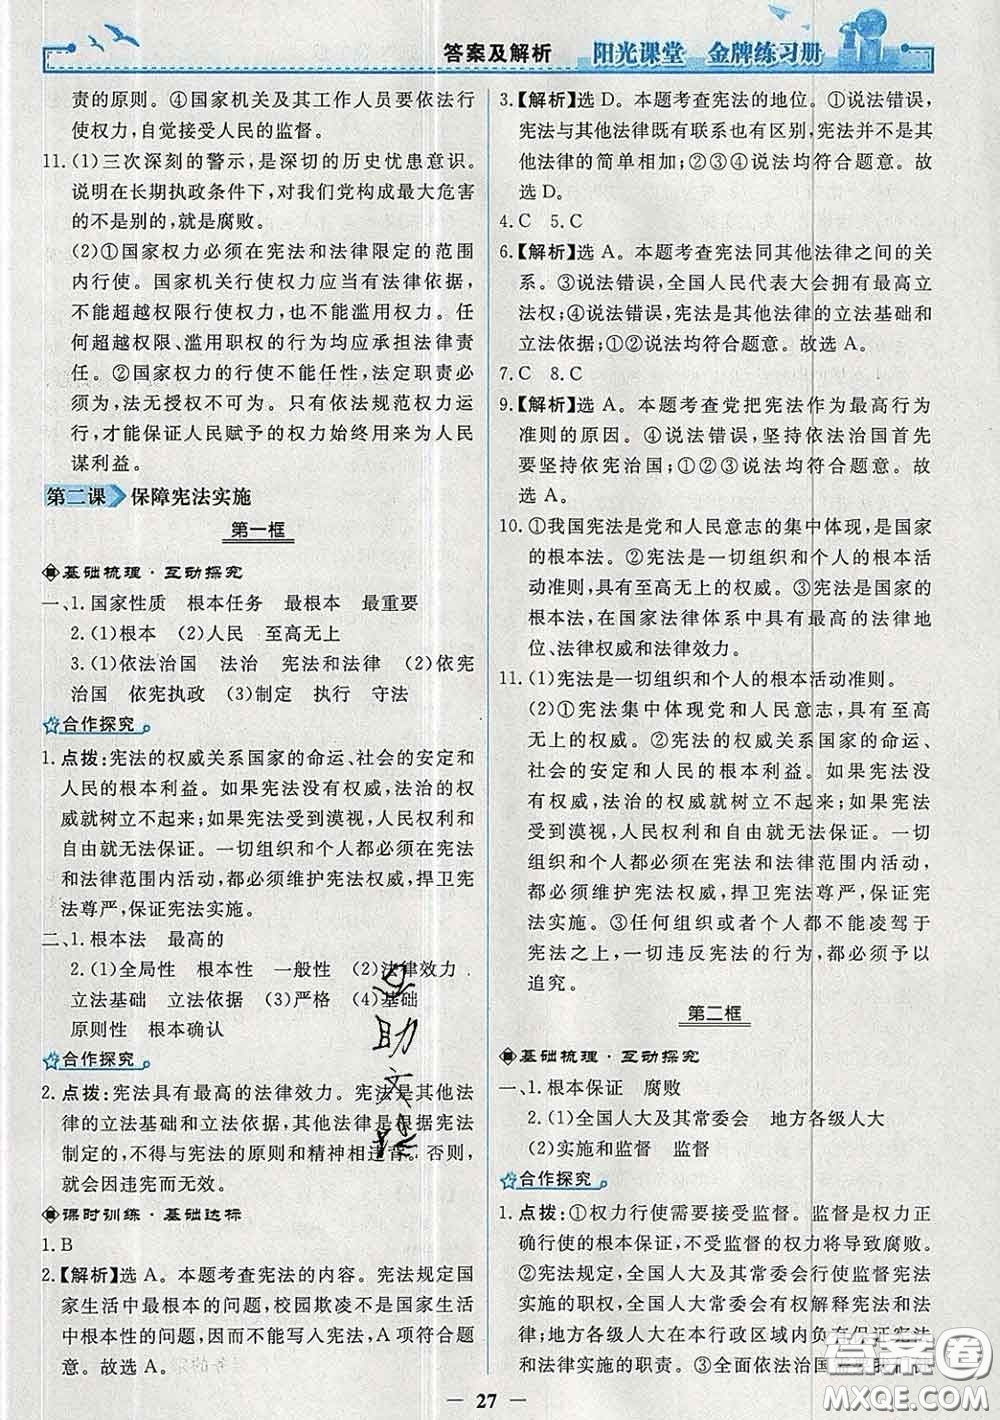 答案及解析 阳光课堂 金牌练习册
责的原则。④国家机关及其工作人员要依法行
使权力,自觉接受人民的监督。
11.(1)三次深刻的警示,是深切的历史忧患意识。
说明在长期执政条件下,对我们党构成最大危害
的不是别的,就是腐败。
(2)①国家权力必须在宪法和法律限定的范围
内行使。国家机关行使权力应当有法律依据,
不能超越权限行使权力,也不能滥用权力。任
何超越权限、滥用职权的行为均应承担法律责
任。②国家权力的行使不能任性,法定职责必
须为,法无授权不可为。只有依法规范权力运
行,才能保证人民赋予的权力始终用来为人民
谋利益。
第二课 保障宪法实施
第一框
基础梳理·互动探究
一、1.国家性质 根本任务 最根本 最重要
2.(1)根本 (2)人民 至高无上
3.(1)依法治国 法治 宪法和法律 (2)依宪
治国 依宪执政 (3)制定 执行 守法
合作探究
1.点拨:宪法的权威关系国家的命运、社会的安定和
人民的根本利益。如果宪法没有权威,法治的权
威就树立不起来;如果宪法受到漠视,人民权利和
自由就无法保证。一切组织和个人都必须在宪法
和法律范围内活动,都必须维护宪法权威,捍卫宪
法尊严,保证宪法实施。
二、1.根本法 最高的
2.(1)全局性 根本性 一般性 (2)法律效力
立法基础 立法依据 (3)严格 (4)基础
原则性 根本确认
合作探究
2.点拨:宪法具有最高的法律效力。宪法是其他法
律的立法基础和立法依据,其他法律是根据宪法
制定的,不得与宪法的原则和精神相违背。否则,
就会因违宪而无效。
课时训练·基础达标
1.B
2.【解析】选A。本题考查宪法的内容。宪法规定国
家生活中最根本的问题,校园欺凌不是国家生活
中根本性的问题,因而不能写入宪法,A项符合题
意。故选A。
3.【解析】选D。本题考查宪法的地位。①说法错误,
宪法与其他法律既有联系也有区别,宪法并不是其
他法律的简单相加;②③④说法均符合题意。故
选D。
4.C 5.C
6.【解析】选A。本题考查宪法同其他法律之间的关
系。③说法错误,全国人民代表大会拥有最高立
法权;④说法错误,宪法是其他法律的立法基础和
立法依据;①②说法均符合题意。故选A。
7.C 8.C
9.【解析】选A。本题考查党把宪法作为最高行为
准则的原因。④说法错误,坚持依法治国首先
要坚持依宪治国;①②③说法均符合题意。
故选A。
10.①我国宪法是党和人民意志的集中体现,是国家
的根本法。②宪法是一切组织和个人的根本活
动准则,具有至高无上的权威。③宪法是国家的
根本法,在国家法律体系中具有最高的法律地
位、法律权威和法律效力。
11.(1)宪法是一切组织和个人的根本活动准则。
(2)①宪法集中体现党和人民意志,具有至高
无上的权威。②宪法的权威关系国家的命运、
社会的安定和人民的根本利益。如果宪法没
有权威,法治的权威就树立不起来;如果宪法
受到漠视,人民权利和自由就无法保证。一切
组织和个人都必须在宪法和法律范围内活动,
都必须维护宪法权威,捍卫宪法尊严,保证宪
法实施。③任何组织或者个人都不能凌驾于
宪法之上,一切违反宪法的行为,都必须予以
追究。
第二框
基础梳理·互动探究
一、1.根本保证 腐败
2.(1)全国人大及其常委会 地方各级人大
(2)实施和监督 监督
合作探究
1.点拨:①权力行使需要接受监督。监督是权力正
确行使的根本保证,不受监督的权力将导致腐败。
②宪法规定,全国人大及其常委会行使监督宪法
实施的职权,全国人大常委会有权解释宪法和法
律;地方各级人大在本行政区域内负有保证宪法
和法律实施的职责。③全面依法治国
— 27 —
答案圈
MXQE.COM